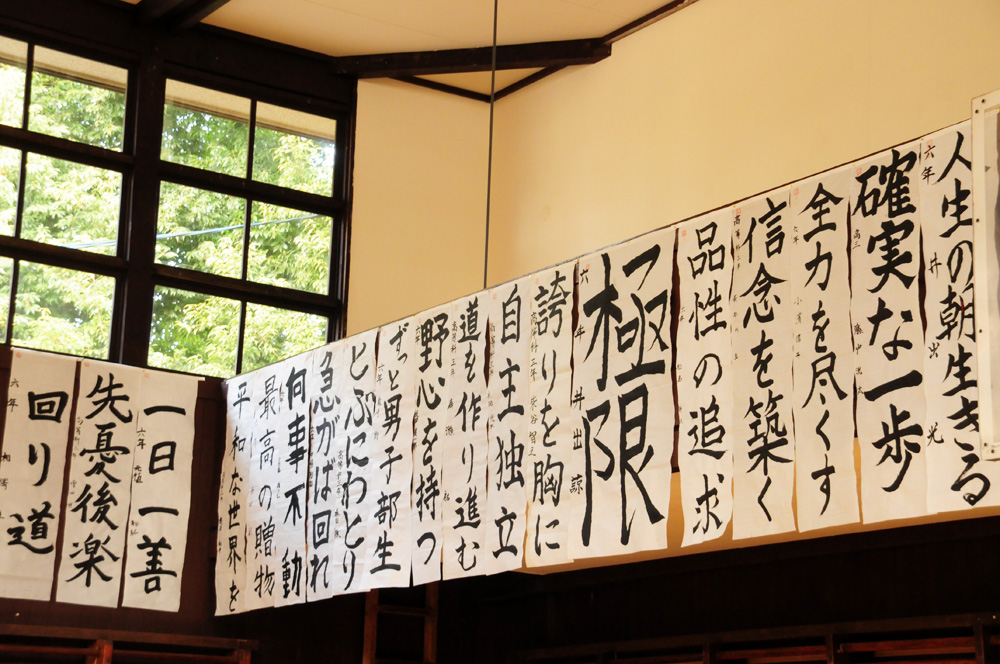 人生の朝生きる
六年
井出光
確実な一歩
高三
全力を尽くす
六年
信念を築く
品性の追求
極限
六年
井出諒
誇りを胸に
自主独立
道を作り進む
野心を持つ
ずっと男子部生
とぶにわとり
急がば回れ
何事不動
最高の贈物
平和な世界を
一日一善
六年
先憂後楽
回り道
六年